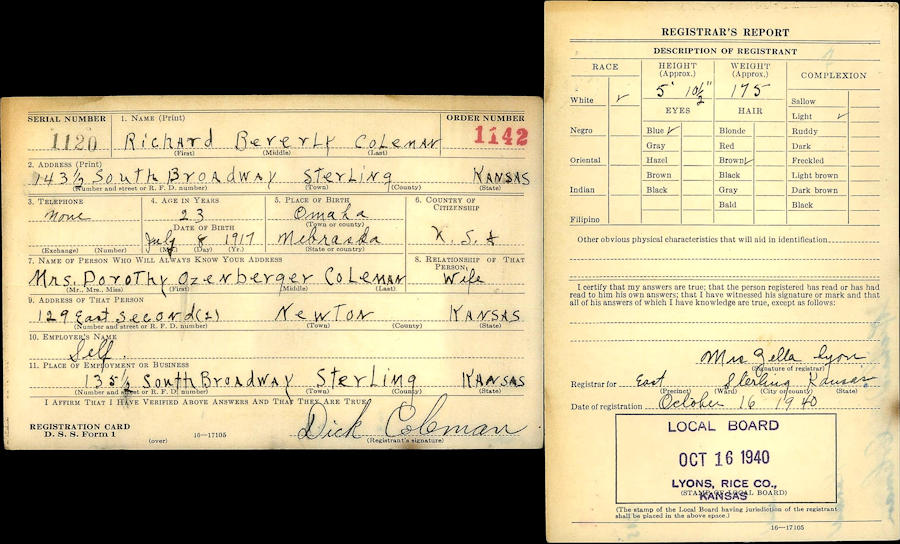 SERIAL NUMBER 1. NAME (Print) ORDER NUMBER
1120 Richard Beverly Coleman 1142
(First) (Middle) (Last)
2. ADDRESS (Print)
143½ South Broadway Sterling Kansas
(Number and street or R. F. D. number) (Town) (County) (State)
3. TELEPHONE 4. AGE IN YEARS 5. PLACE OF BIRTH 6. COUNTRY OF CITIZENSHIP
None 23 Omaha
(Town or county)
DATE OF BIRTH
July 8 1917 Nebraska
(Exchange) (Number) (Mo.) (Day) (Yr.) (State or country)
7. NAME OF PERSON WHO WILL ALWAYS KNOW YOUR ADDRESS 8. RELATIONSHIP OF THAT PERSON
Mrs. Dorothy Ozenberger Coleman Wife
(Mr., Mrs., Miss) (First) (Middle) (Last)
9. ADDRESS OF THAT PERSON
129 East Second (2) Newton Kansas
(Number and street or R. F. D. number) (Town) (County) (State)
10. EMPLOYER'S NAME
Self.
11. PLACE OF EMPLOYMENT OR BUSINESS
135½ South Broadway Sterling Kansas
(Number and street or R. F. D. number) (Town) (County) (State)
I AFFIRM THAT I HAVE VERIFIED ABOVE ANSWERS AND THAT THEY ARE TRUE.
REGISTRATION CARD Dick Coleman
D. S. S. Form 1 (over) 16—17105 (Registrant's signature)
REGISTRAR'S REPORT
DESCRIPTION OF REGISTRANT
RACE HEIGHT (Approx.) WEIGHT (Approx.) COMPLEXION
5' 10½" 175
White ✓ EYES HAIR Sallow
Light ✓
Negro Blue ✓ Blonde Ruddy
Gray Red Dark
Oriental Hazel Brown ✓ Freckled
Brown Black Light brown
Indian Black Gray Dark brown
Bald Black
Filipino
Other obvious physical characteristics that will aid in identification
I certify that my answers are true; that the person registered has read or has had
read to him his own answers; that I have witnessed his signature or mark and that
all of his answers of which I have knowledge are true, except as follows:
Mrs Zella Lyon
(Signature of registrar)
Registrar for East Sterling Kansas
(Precinct) (Ward) (City or county) (State)
Date of registration October 16 1940
LOCAL BOARD
OCT 16 1940
LYONS, RICE CO.,
KANSAS
(STAMP OF LOCAL BOARD)
(The stamp of the Local Board having jurisdiction of the registrant
shall be placed in the above space.)
16—17105